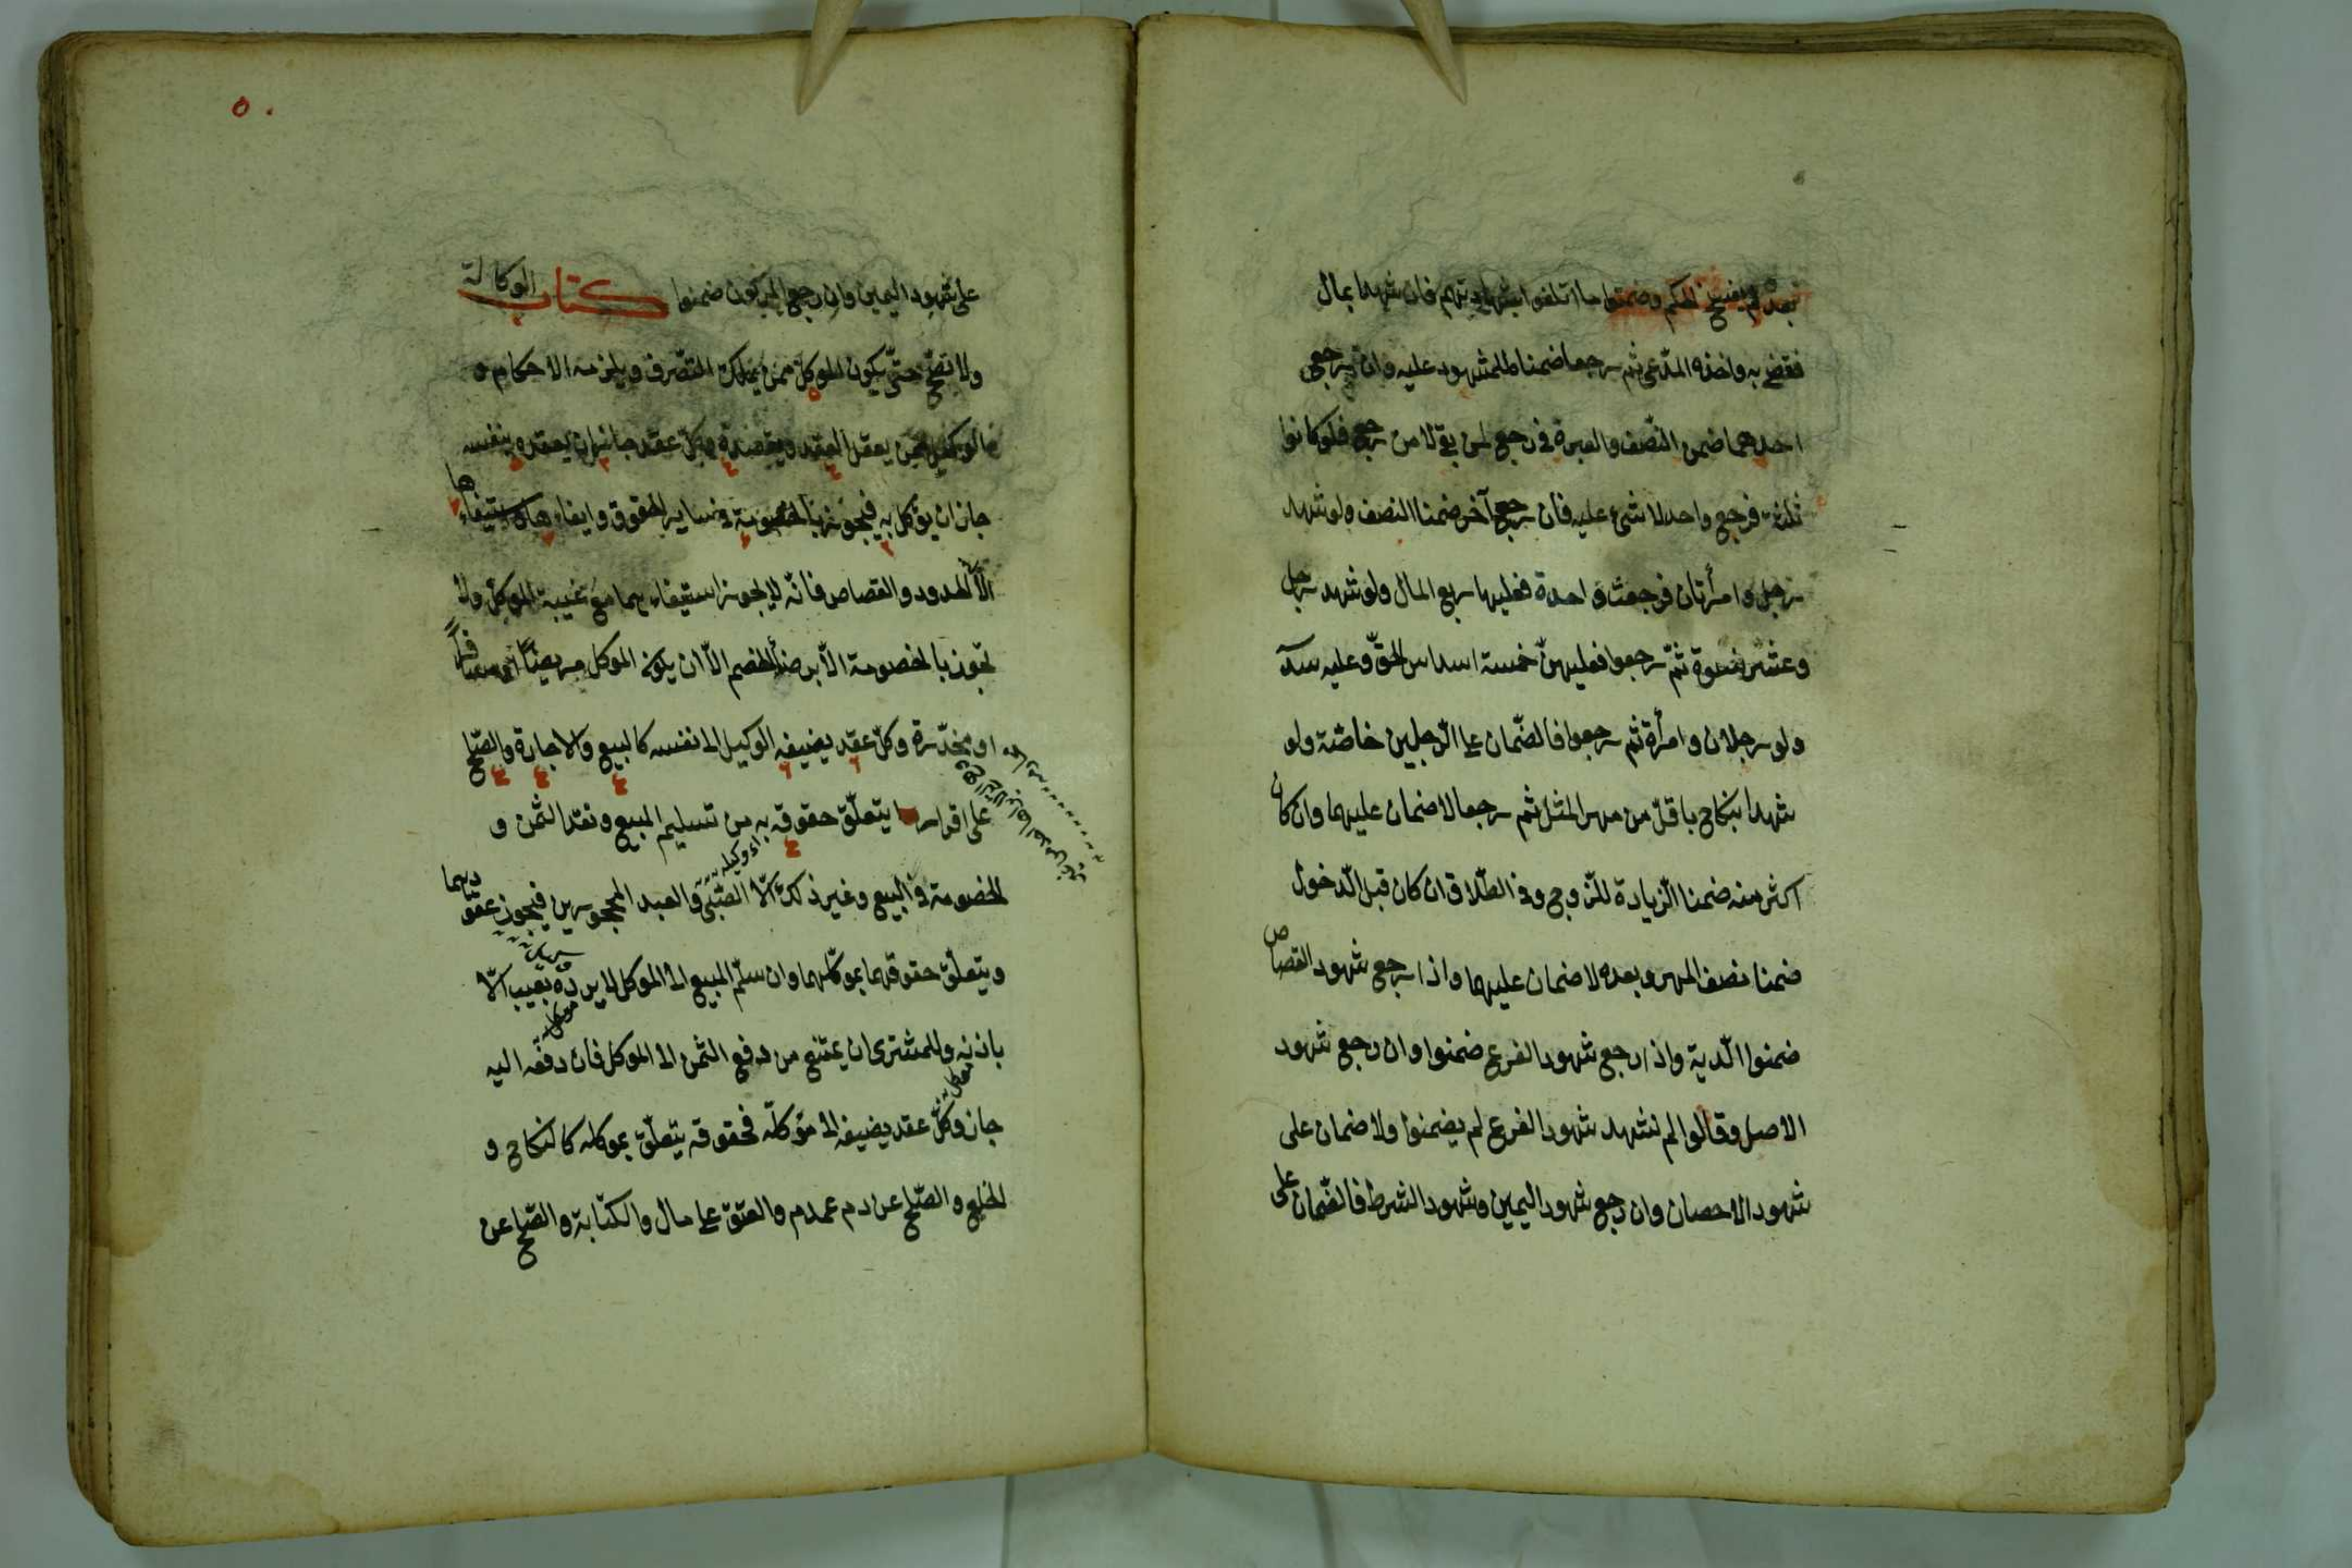 بعده لم يفسخ الحكم وضمنوا ما اتلفوا بشهادتهم فان شهدا بمال
فقضى به واخذه المدّعى ثم رجعا ضمنا للمشهود عليه وان رجع
احدهما ضمن النّصف والعبرة فى رجع لمن بقى لا من رجع فلو كانوا
ثلثة فرجع واحد لا شئ عليه فان رجع آخر ضمنا النصف ولو شهد
رجل وامرأتان فرجعت واحدة فعليها ربع المال ولو شهد رجل
وعشر نسوة ثمّ رجعوا فعليهنّ خمسة اسداس الحقّ وعليه سدس
ولو رجلان وامرأة ثم رجعوا فالضّمان على الرّجلين خاصّة ولو
شهدا بنكاح باقلّ من مهر المثل ثم رجعا لا ضمان عليهما وان كان
اكثر منه ضمنا الزّيادة للزّوج وفى الطّلاق ان كان قبل الدّخول
ضمنا نصف المهر وبعده لا ضمان عليهما واذا رجع شهود القصاص
ضمنوا الدّية واذا رجع شهود الفرع ضمنوا وان رجع شهود
الاصل وقالوا لم نشهد شهود الفرع لم يضمنوا ولا ضمان على
شهود الاحصان وان رجع شهود اليمين وشهود الشرط فالضّمان على
٥٠
على شهود اليمين وان رجع المزكون ضمنوا كتاب الوكالة
ولا تصحّ حتّى يكون الموكلّ ممن يملك التصّرف ويلزمه الاحكام و
الوكيل ممن يعقل العقد ويقصده وكلّ عقد جاز ان يعقده بنفسه
جاز ان يوكل به فيجوز بالخصومة فى ساير الحقوق وايفاءها واستيفاءها
الّا الحدود والقصاص فانّه لا يجوز استيفاءهما مع غيبة الموكلّ ولا
تجوز بالخصومة الّا برضأ الخصم الّا ان يكون الموكل مريضًا او مسافرًا
او مخدّرة وكلّ عقد يضيفه الوكيل الى نفسه كالبيع والاجارة والصّلح
على اقرار يتعلّق حقوقه به من تسليم المبيع ونقد الثمن و
اى وكيله
الخصومة فى البيع وغير ذلك الّا الصّبّى والعبد المحجورين فيجوز عقودهما
ويتعلّق حقوقهما بموكّلهما وان سلّم المبيع الى الموكل لا يردّه بعيب الّا
باذنه وللمشترى ان يمتنع من دفع الثمن الى الموكل فان دفعه اليه
جاز وكلّ عقد يضيفه الى موكلّه فحقوقه يتعلّق بموكله كالنكاح و
الخلع والصّلح عن دم عمد والعتق على مال والكتابة والصّلح عن